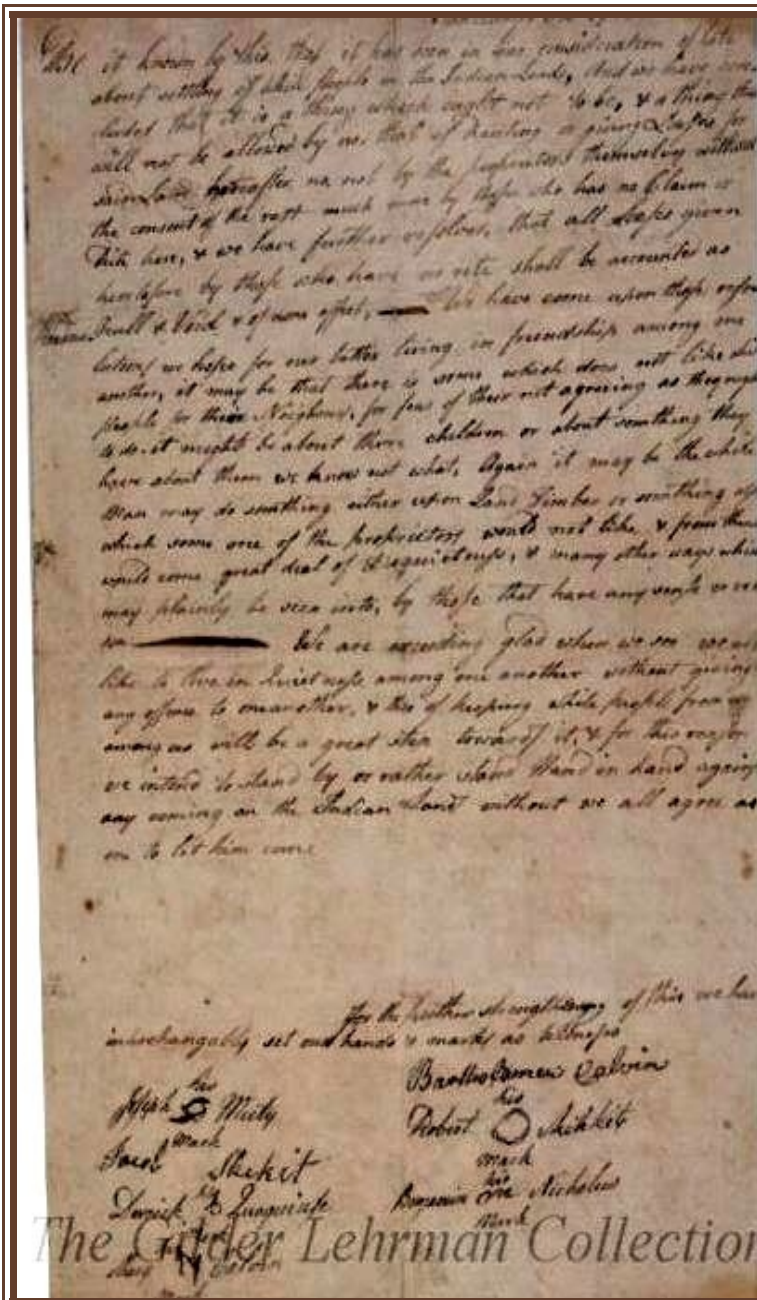 Be it known by this, that it has been in our consideration of late
about settling of white people in the Indian Lands, And we have con-
cluded that it is a thing which ought not to be, & a thing that
will not be allowed by us, that of Renting or giving Leases for
said Land hereafter no, not by the proprietors themselves without
the consent of the rest much more by those who has no Claim or
here, & we have further resolved, that all Leases given
heretofore by those who have no rite shall be accounted as
Null & Void & of none effect, We have come upon these
we hope for our better living in friendship among one
another, it may be that there is some which does not like
people for their Neighbours, for fear of their not agreeing as they ought
to do it might be about their children or about something they
have about them we know not what, Again it may be the white
Man may do something either upon Land Timber or something
which some one of the proprietors would not like, & from thence
would come great deal of disquietness, & many other ways which
may plainly be seen into, by those that have any
We are exceeding glad when we see
like to live in Quietness among one another without giving
any offence to one another, & this of keeping white people from
among us will be a great step towards it, & for this reason
we intend to stand by, or rather stand Hand in hand against
any coming on the Indian Land without we all agree as
one to let him come
For the further strengthening of this we have
interchangably set our hands & marks as Witness
Bartholomew Calvin
his
Joseph Meety
mark
his
Robert Skikkit
mark
Jacob Skekit
his
Derrick Quaquiuse
his
Benjamin Nicholus
mark
Calvin
The Gilder Lehrman Collection